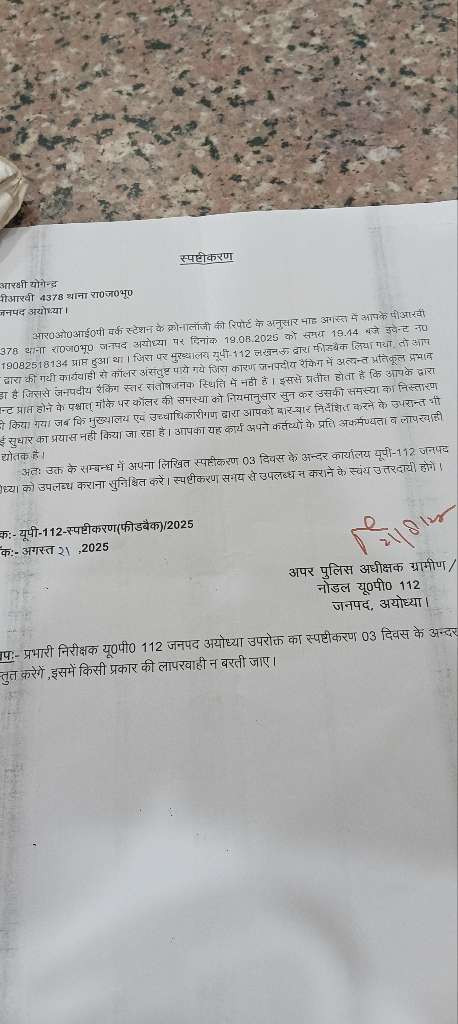 स्पष्टीकरण
आरक्षी योगेन्द्र
पीआरवी 4378 थाना रा०ज०भू०
जनपद अयोध्या।
आर०ओ०आई०पी वर्क स्टेशन के क्रोनालॉजी की रिपोर्ट के अनुसार माह अगस्त में आपके पीआरवी
378 थाना रा०ज०भू० जनपद अयोध्या पर दिनांक 19.08.2025 को समय 19.44 बजे इवेन्ट न०
19082518134 प्राप्त हुआ था। जिस पर मुख्यालय यूपी-112 लखनऊ द्वारा फीडबैक लिया गया, तो आप
द्वारा की गयी कार्यवाही से कॉलर असंतुष्ट पाये गये जिस कारण जनपदीय रैंकिग में अत्यन्त प्रतिकूल प्रभाव
डा है जिससे जनपदीय रैकिंग स्तर संतोषजनक स्थिति में नही है। इससे प्रतीत होता है कि आपके द्वारा
न्ट प्राप्त होने के पश्चात् मौके पर कॉलर की समस्या को नियमानुसार सुन कर उसकी समस्या का निस्तारण
ही किया गया जब कि मुख्यालय एवं उच्चाधिकारीगण द्वारा आपको बार-बार निर्देशित करने के उपरान्त भी
ई सुधार का प्रयास नही किया जा रहा है। आपका यह कार्य अपने कर्तव्यों के प्रति अकर्मण्यता व लापरवाही
द्योतक है।
अतः उक्त के सम्बन्ध में अपना लिखित स्पष्टीकरण 03 दिवस के अन्दर कार्यालय यूपी-112 जनपद
ध्या को उपलब्ध कराना सुनिश्चित करें। स्पष्टीकरण समय से उपलब्ध न कराने के स्वयं उत्तरदायी होगें।
क:- यूपी-112-स्पष्टीकरण(फीडबैक)/2025
क:- अगस्त २१ ,2025
21/8/25
अपर पुलिस अधीक्षक ग्रामीण/
नोडल यू०पी० 112
जनपद, अयोध्या।
प:- प्रभारी निरीक्षक यू०पी० 112 जनपद अयोध्या उपरोक्त का स्पष्टीकरण 03 दिवस के अन्दर
तुत करेगें ,इसमें किसी प्रकार की लापरवाही न बरती जाए।